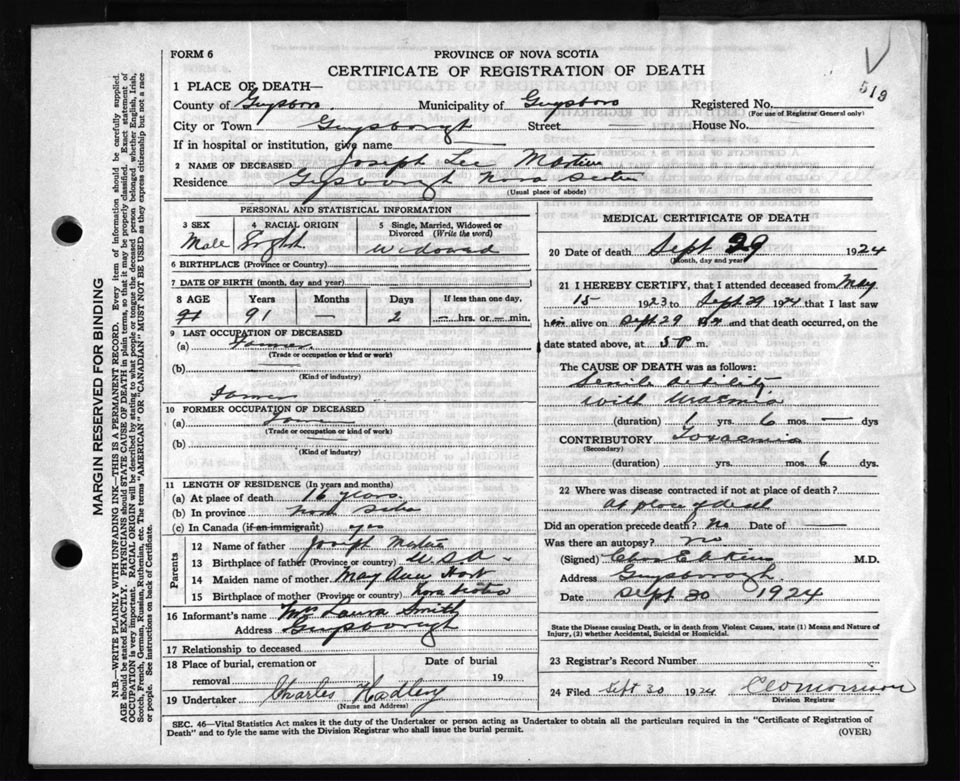 FORM 6
PROVINCE OF NOVA SCOTIA
CERTIFICATE OF REGISTRATION OF DEATH
513
1 PLACE OF DEATH—
County of Guysboro. Municipality of Guysboro Registered No.
(For use of Registrar General only)
City or Town Guysborough Street House No.
If in hospital or institution, give name
2 NAME OF DECEASED Joseph Lee Martin
Residence Guysborough Nova Scotia
(Usual place of abode)
PERSONAL AND STATISTICAL INFORMATION
3 SEX
Male
4 RACIAL ORIGIN
English
5 Single, Married, Widowed or Divorced (Write the word)
Widowed
6 BIRTHPLACE (Province or Country)
7 DATE OF BIRTH (month, day and year)
8 AGE Years Months Days If less than one day,
91 91 — 2 — hrs. or — min.
9 LAST OCCUPATION OF DECEASED
(a) Farmer
(Trade or occupation or kind or work)
(b)
(Kind of industry)
Farmer
10 FORMER OCCUPATION OF DECEASED
(a)
(Trade or occupation or kind or work)
(b)
(Kind of industry)
11 LENGTH OF RESIDENCE (In years and months)
(a) At place of death 16 years.
(b) In province Nova Scotia
(c) In Canada (if an immigrant) yes
Parents
12 Name of father Joseph Martin
13 Birthplace of father (Province or country) U.S.A —
14 Maiden name of mother May Ann Hart
15 Birthplace of mother (Province or country) Nova Scotia
16 Informant's name Mrs Laura Smith
Address Guysborough
17 Relationship to deceased
18 Place of burial, cremation or removal
Date of burial 19
19 Undertaker Charles Hadley
(Name and Address)
MEDICAL CERTIFICATE OF DEATH
20 Date of death Sept 29 1924
(Month, day and year)
21 I HEREBY CERTIFY, that I attended deceased from May
15 1923 to Sept. 29 1924 that I last saw
him alive on Sept. 29 1924 and that death occurred, on
date stated above, at 5 P. m.
The CAUSE OF DEATH was as follows:
Senile debility
with Uraemia
(duration) 1 yrs. 6 mos. — dys
CONTRIBUTORY Toxaemia
(Secondary)
(duration) yrs. mos. 6 dys.
22 Where was disease contracted if not at place of death?
At place of death
Did an operation precede death? No Date of —
Was there an autopsy? no
(Signed) M.D.
Address Guysborough.
Date Sept 30 1924
State the Disease causing Death, or in death from Violent Causes, state (1) Means and Nature of Injury, (2) whether Accidental, Suicidal or Homicidal.
23 Registrar's Record Number
24 Filed Sept 30 1924
Division Registrar
SEC. 46—Vital Statistics Act makes it the duty of the Undertaker or person acting as Undertaker to obtain all the particulars required in the "Certificate of Registration of
Death" and to fyle the same with the Division Registrar who shall issue the burial permit. (OVER)
MARGIN RESERVED FOR BINDING
N.B.—WRITE PLAINLY WITH UNFADING INK—THIS IS A PERMANENT RECORD. Every item of information should be carefully supplied.
AGE should be stated EXACTLY. PHYSICIANS should STATE CAUSE OF DEATH in plain terms, so that it may be properly classified. Exact statement of
OCCUPATION is very important. RACIAL ORIGIN will be described by stating to what people or tongue the deceased person belonged, whether English, Irish,
Scotch, French, German, Russian, Ruthenian, etc. The terms "AMERICAN" OR "CANADIAN" MUST NOT BE USED as they express citizenship but not a race
or people. See instructions on back of Certificate.